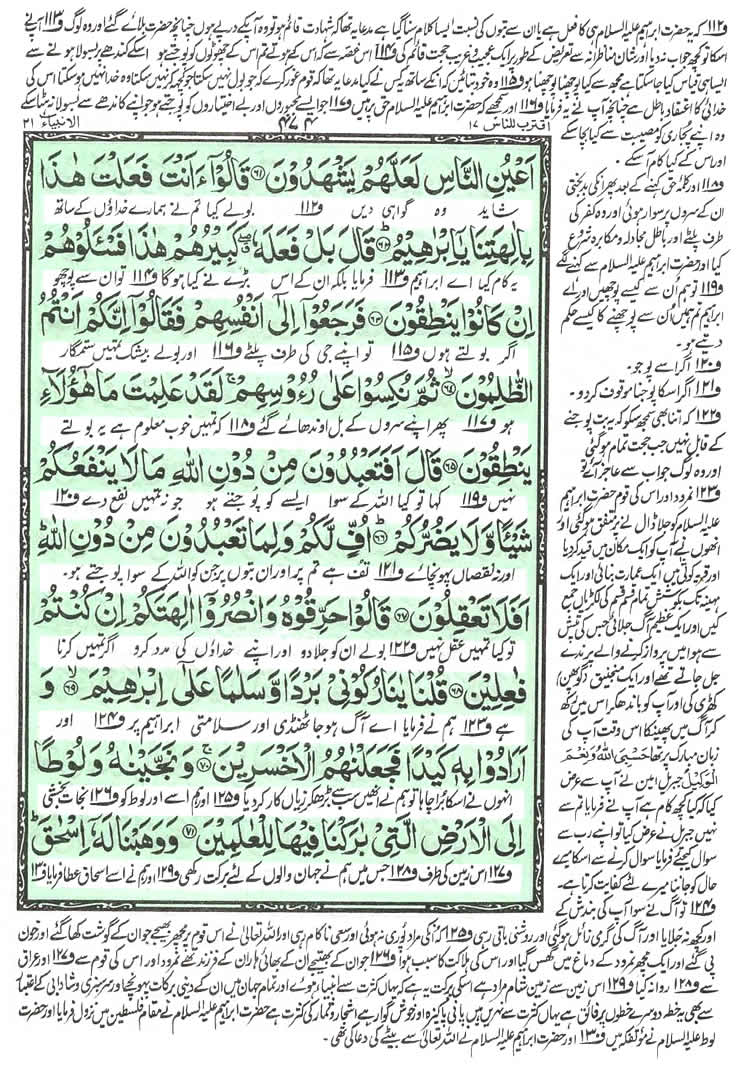 و۱۱۲ کہ یہ حضرت ابراہیم علیہ السلام ہی کا فعل ہے یا ان سے بتوں کی نسبت ایسا کلام سنا گیا ہے مدعا یہ تھا کہ شہادت قائم ہو تو وہ آپ کے درپے ہوں چنانچہ حضرت بلائے گئے اور وہ لوگ و۱۱۳ آپ نے
اسکا تو کچھ جواب نہ دیا اور شان مناظرانہ سے تعریض کے طور پر ایک عجیب و غریب حجت قائم کی و۱۱۴ اس غصہ سے کہ اس کے ہوتے تم اس کے چھوٹوں کو پوجتے ہو اسکے کندھے پر بسولا ہونے سے
ایسا ہی قیاس کیا جاسکتا ہے مجھ سے کیا پوچھنا پوچھنا ہو و۱۱۵ وہ خود بتائیں کہ انکے ساتھ یہ کس نے کیا مدعا یہ تھا کہ قوم غور کرے کہ جو بول نہیں سکتا جو کچھ کر نہیں سکتا وہ خدا نہیں ہوسکتا اس کی
خدائی کا اعتقاد باطل ہے چنانچہ آپ نے یہ فرمایا و۱۱۶ اور سمجھے کہ حضرت ابراہیم علیہ السلام حق پر ہیں و۱۱۷ جو ایسے مجبوروں اور بے اختیاروں کو پوجتے ہو جو اپنے کاندھے سے بسولا نہ ہٹا سکے
اقترب للناس ۱۷
۴۷۴
الانبیاء ۲۱
اَعْيُنِ النَّاسِ لَعَلَّهُمْ يَشْهَدُوْنَ ۝۶۱ قَالُوْۤا ءَاَنْتَ فَعَلْتَ هٰذَا
شاید وہ گواہی دیں و۱۱۲ بولے کیا تم نے ہمارے خداؤں کے ساتھ
بِاٰلِهَتِنَا يٰۤاِبْرٰهِيْمُ ۝۶۲ قَالَ بَلْ فَعَلَهٗ ۖۗ كَبِيْرُهُمْ هٰذَا فَسْـَٔلُوْهُمْ
یہ کام کیا اے ابراہیم و۱۱۳ فرمایا بلکہ ان کے اس بڑے نے کیا ہوگا و۱۱۴ تو ان سے پوچھو
اِنْ كَانُوْا يَنْطِقُوْنَ ۝۶۳ فَرَجَعُوْۤا اِلٰۤى اَنْفُسِهِمْ فَقَالُوْۤا اِنَّكُمْ اَنْتُمُ
اگر بولتے ہوں و۱۱۵ تو اپنے جی کی طرف پلٹے و۱۱۶ اور بولے بیشک تمہیں ستمگار
الظّٰلِمُوْنَ ۝۶۴ ثُمَّ نُكِسُوْا عَلٰى رُءُوْسِهِمْ ۚ لَقَدْ عَلِمْتَ مَا هٰۤؤُلَآءِ
ہو و۱۱۷ پھر اپنے سروں کے بل اوندھائے گئے و۱۱۸ کہ تمہیں خوب معلوم ہے یہ بولتے
يَنْطِقُوْنَ ۝۶۵ قَالَ اَفَتَعْبُدُوْنَ مِنْ دُوْنِ اللّٰهِ مَا لَا يَنْفَعُكُمْ
نہیں و۱۱۹ کہا تو کیا اللہ کے سوا ایسے کو پوجتے ہو جو نہ تمہیں نفع دے و۱۲۰
شَيْـًٔا وَّلَا يَضُرُّكُمْ ۝۶۶ اُفٍّ لَّكُمْ وَلِمَا تَعْبُدُوْنَ مِنْ دُوْنِ اللّٰهِ ؕ
اور نہ نقصان پہونچائے و۱۲۱ تف ہے تم پر اور ان بتوں پر جن کو اللہ کے سوا پوجتے ہو۔
اَفَلَا تَعْقِلُوْنَ ۝۶۷ قَالُوْا حَرِّقُوْهُ وَانْصُرُوْۤا اٰلِهَتَكُمْ اِنْ كُنْتُمْ
تو کیا تمہیں عقل نہیں و۱۲۲ بولے ان کو جلا دو اور اپنے خداؤں کی مدد کرو اگر تمہیں کرنا
فٰعِلِيْنَ ۝۶۸ قُلْنَا يٰنَارُ كُوْنِيْ بَرْدًا وَّسَلٰمًا عَلٰۤى اِبْرٰهِيْمَ ۝۶۹ وَ
ہے و۱۲۳ ہم نے فرمایا اے آگ ہو جا ٹھنڈی اور سلامتی ابراہیم پر و۱۲۴ اور
اَرَادُوْا بِهٖ كَيْدًا فَجَعَلْنٰهُمُ الْاَخْسَرِيْنَ ۝۷۰ وَنَجَّيْنٰهُ وَلُوْطًا
انہوں نے اسکا برا چاہا تو ہم نے انھیں سب سے بڑھ کر زیاں کار کر دیا و۱۲۵ اور ہم اسے اور لوط کو و۱۲۶ نجات بخشی
اِلَى الْاَرْضِ الَّتِيْ بٰرَكْنَا فِيْهَا لِلْعٰلَمِيْنَ ۝۷۱ وَوَهَبْنَا لَهٗۤ اِسْحٰقَ ؕ
و۱۲۷ اس زمین کی طرف و۱۲۸ جس میں ہم نے جہان والوں کے لئے برکت رکھی و۱۲۹ اور ہم نے اسے اسحاق عطا فرمایا و۱۳۰
وہ اپنے پجاری کو مصیبت سے کیا بچا سکے
اور اس کے کیا کام آ سکے۔
و۱۱۸ اور کلمۂ حق کہنے کے بعد پھر انکی بدبختی
ان کے سروں پر سوار ہوئی اور وہ کفر کی
طرف پلٹے اور باطل مجادلہ و مکابرہ شروع
کیا اور حضرت ابراہیم علیہ السلام سے کہنے لگے
و۱۱۹ تو ہم ان سے کیسے پوچھیں اور اے
ابراہیم تم ہمیں ان سے پوچھنے کا کیسے حکم
دیتے ہو۔
و۱۲۰ اگر اسے پوجو۔
و۱۲۱ اگر اسکا پوجنا موقوف کر دو۔
و۱۲۲ کہ اتنا بھی سمجھ سکو کہ یہ بت پوجنے
کے قابل نہیں جب حجت تمام ہو گئی
اور وہ لوگ جواب سے عاجز آئے تو
و۱۲۳ نمرود اور اس کی قوم حضرت ابراہیم
علیہ السلام کو جلا ڈالنے پر متفق ہو گئی اور
انھوں نے آپ کو ایک مکان میں قید کر دیا
اور قریہ کوثی میں ایک عمارت بنائی اور ایک
مہینہ تک بکوشش تمام قسم قسم کی لکڑیاں جمع
کیں اور ایک عظیم آگ جلائی جس کی تپش
سے ہوا میں پرواز کرنے والے پرندے
جل جاتے تھے اور ایک منجنیق (گوپھن)
کھڑی کی اور آپ کو باندھ کر اس میں رکھ
کر آگ میں پھینکا اس وقت آپ کی
زبان مبارک پر تھا حَسْبِیَ اللّٰهُ وَنِعْمَ
الْوَكِيْلُ جبریل امین نے آپ سے عرض
کیا کہ کیا کچھ کام ہے آپ نے فرمایا تم سے
نہیں جبریل نے عرض کیا تو اپنے رب سے
سوال کیجئے فرمایا سوال کرنے سے اسکا میرے
حال کو جاننا میرے لئے کفایت کرتا ہے۔
و۱۲۴ تو آگ نے سوا آپ کی بندش کے
اور کچھ نہ جلایا اور آگ کی گرمی زائل ہو گئی اور روشنی باقی رہی و۱۲۵ کہ انکی مراد پوری نہ ہوئی اور سعی ناکام رہی اور اللہ تعالیٰ نے اس قوم پر مچھر بھیجے جو ان کے گوشت کھا گئے اور خون
پی گئے اور ایک مچھر نمرود کے دماغ میں گھس گیا اور اس کی ہلاکت کا سبب ہوا و۱۲۶ جو ان کے بھتیجے ان کے بھائی ہاران کے فرزند تھے نمرود اور اس کی قوم سے و۱۲۷ اور عراق
سے و۱۲۸ روانہ کیا و۱۲۹ اس زمین سے زمین شام مراد ہے اسکی برکت یہ ہے کہ یہاں کثرت سے انبیاء ہوئے اور تمام جہان میں ان کے دینی برکات پہونچے اور سرسبزی و شادابی کے اعتبار
سے بھی یہ خطہ دوسرے خطوں پر فائق ہے یہاں کثرت سے نہریں ہیں پانی پاکیزہ اور خوش گوار ہے اشجار و ثمار کی کثرت ہے حضرت ابراہیم علیہ السلام نے مقام فلسطین میں نزول فرمایا اور حضرت
لوط علیہ السلام نے مؤتفکہ میں و۱۳۰ اور حضرت ابراہیم علیہ السلام نے اللہ تعالیٰ سے بیٹے کی دعا کی تھی۔